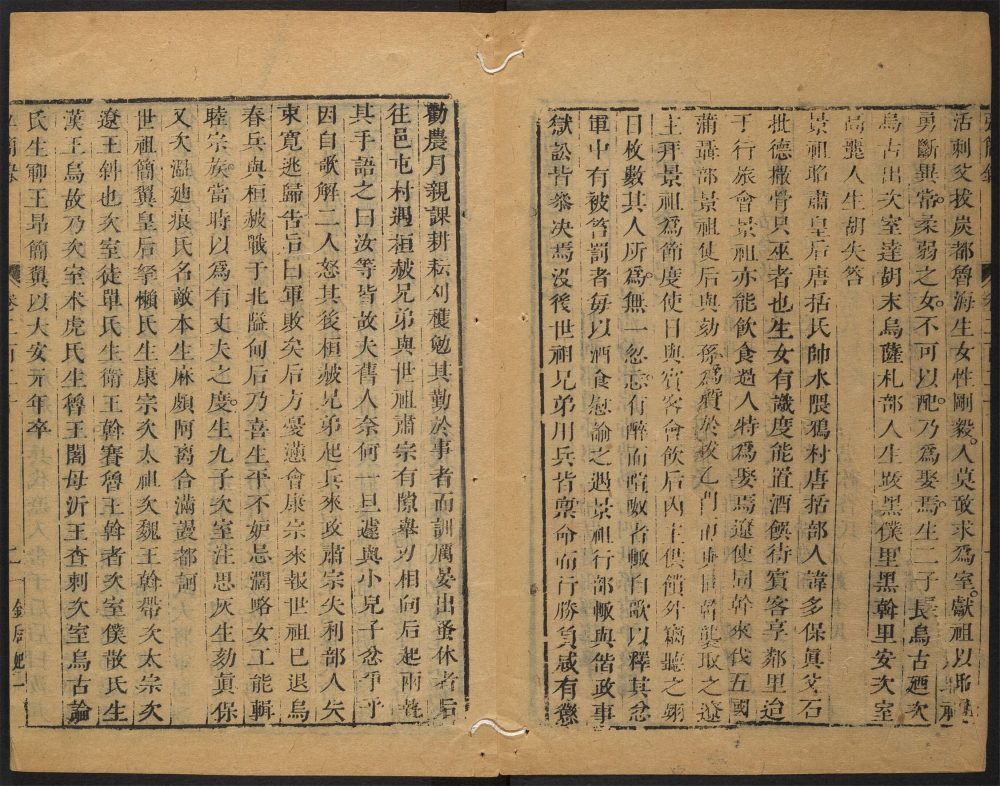 活刺父拔炭都魯海生女性剛毅人莫敢求為室獻祖以
勇斷異常柔弱之女不可以配乃為娶焉生二子長烏古廼次
烏古出次室達胡末烏薩札部人生跋黑僕里黑斡里安次室
高麗人生胡失答
景祖昭肅皇后唐括氏帥水隈鴉村唐括部人諱多保真父石
批德撒骨只巫者也生女有識度能置酒饌待賓客享鄰里迨
于行旅會景祖亦能飲食過人特為娶焉遼使同幹來伐五國
蒲聶部景祖使后與劾孫為質於拔乙門而襲取之遼
主拜景祖為節度使日與賓客會飲后內主供饋外竊聽之翊
日枚數其人所為無一忽忘有醉而喧呶者輒自歌以釋其忿
軍中有被笞罰者每以酒食慰諭之遇景祖行部輒與偕政事
獄訟皆參決焉沒後世祖兄弟用兵皆稟命而行勝負咸有懲
勸農月親課耕耘刈穫勉其勤於事者而訓厲晏出蚤休者后
往邑屯村遇桓赧兄弟與世祖肅宗有隙舉刃相向后起兩執
其手語之曰汝等皆故夫舊人奈何一旦遽與小兒子忿爭乎
因自歌解二人怒其後桓赧兄弟起兵來攻肅宗失利部人失
東寬逃歸告后曰軍敗矣后方憂懣會康宗來報世祖已退烏
春兵與桓赧戰于北隘甸后乃喜生平不妒忌濶略女工能輯
睦宗族當時以為有丈夫之度生九子次室注思灰生劾真保
又次溫廸痕氏名敵本生麻頗阿离合滿謾都訶
世祖簡翼皇后拏懶氏生康宗次太祖次魏王斡帶次太宗次
遼王斜也次室徒單氏生衛王斡賽魯王斡者次室僕散氏生
漢王烏故乃次室术虎氏生魯王闍母沂王查剌次室烏古論
氏生鄆王昂簡翼以大安元年卒